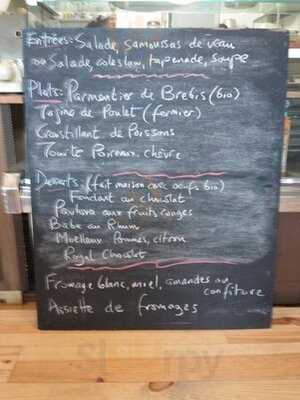 Entrées: Salade, Samoussas de veau
ou Salade, coleslaw, tapenade, soupe
Plats: Parmentier de Brebis (bio)
Tajine de Poulet (fermier)
Croustillant de Poissons
Tourte Poireaux. chèvre
Desserts: (fait maison avec oeufs bio)
Fondant au chocolat
Pavlova aux fruits rouges
Baba au Rhum
Moelleux Pommes, citron
Royal Chocolat
Fromage blanc, miel, amandes ou
confiture
Assiette de fromages